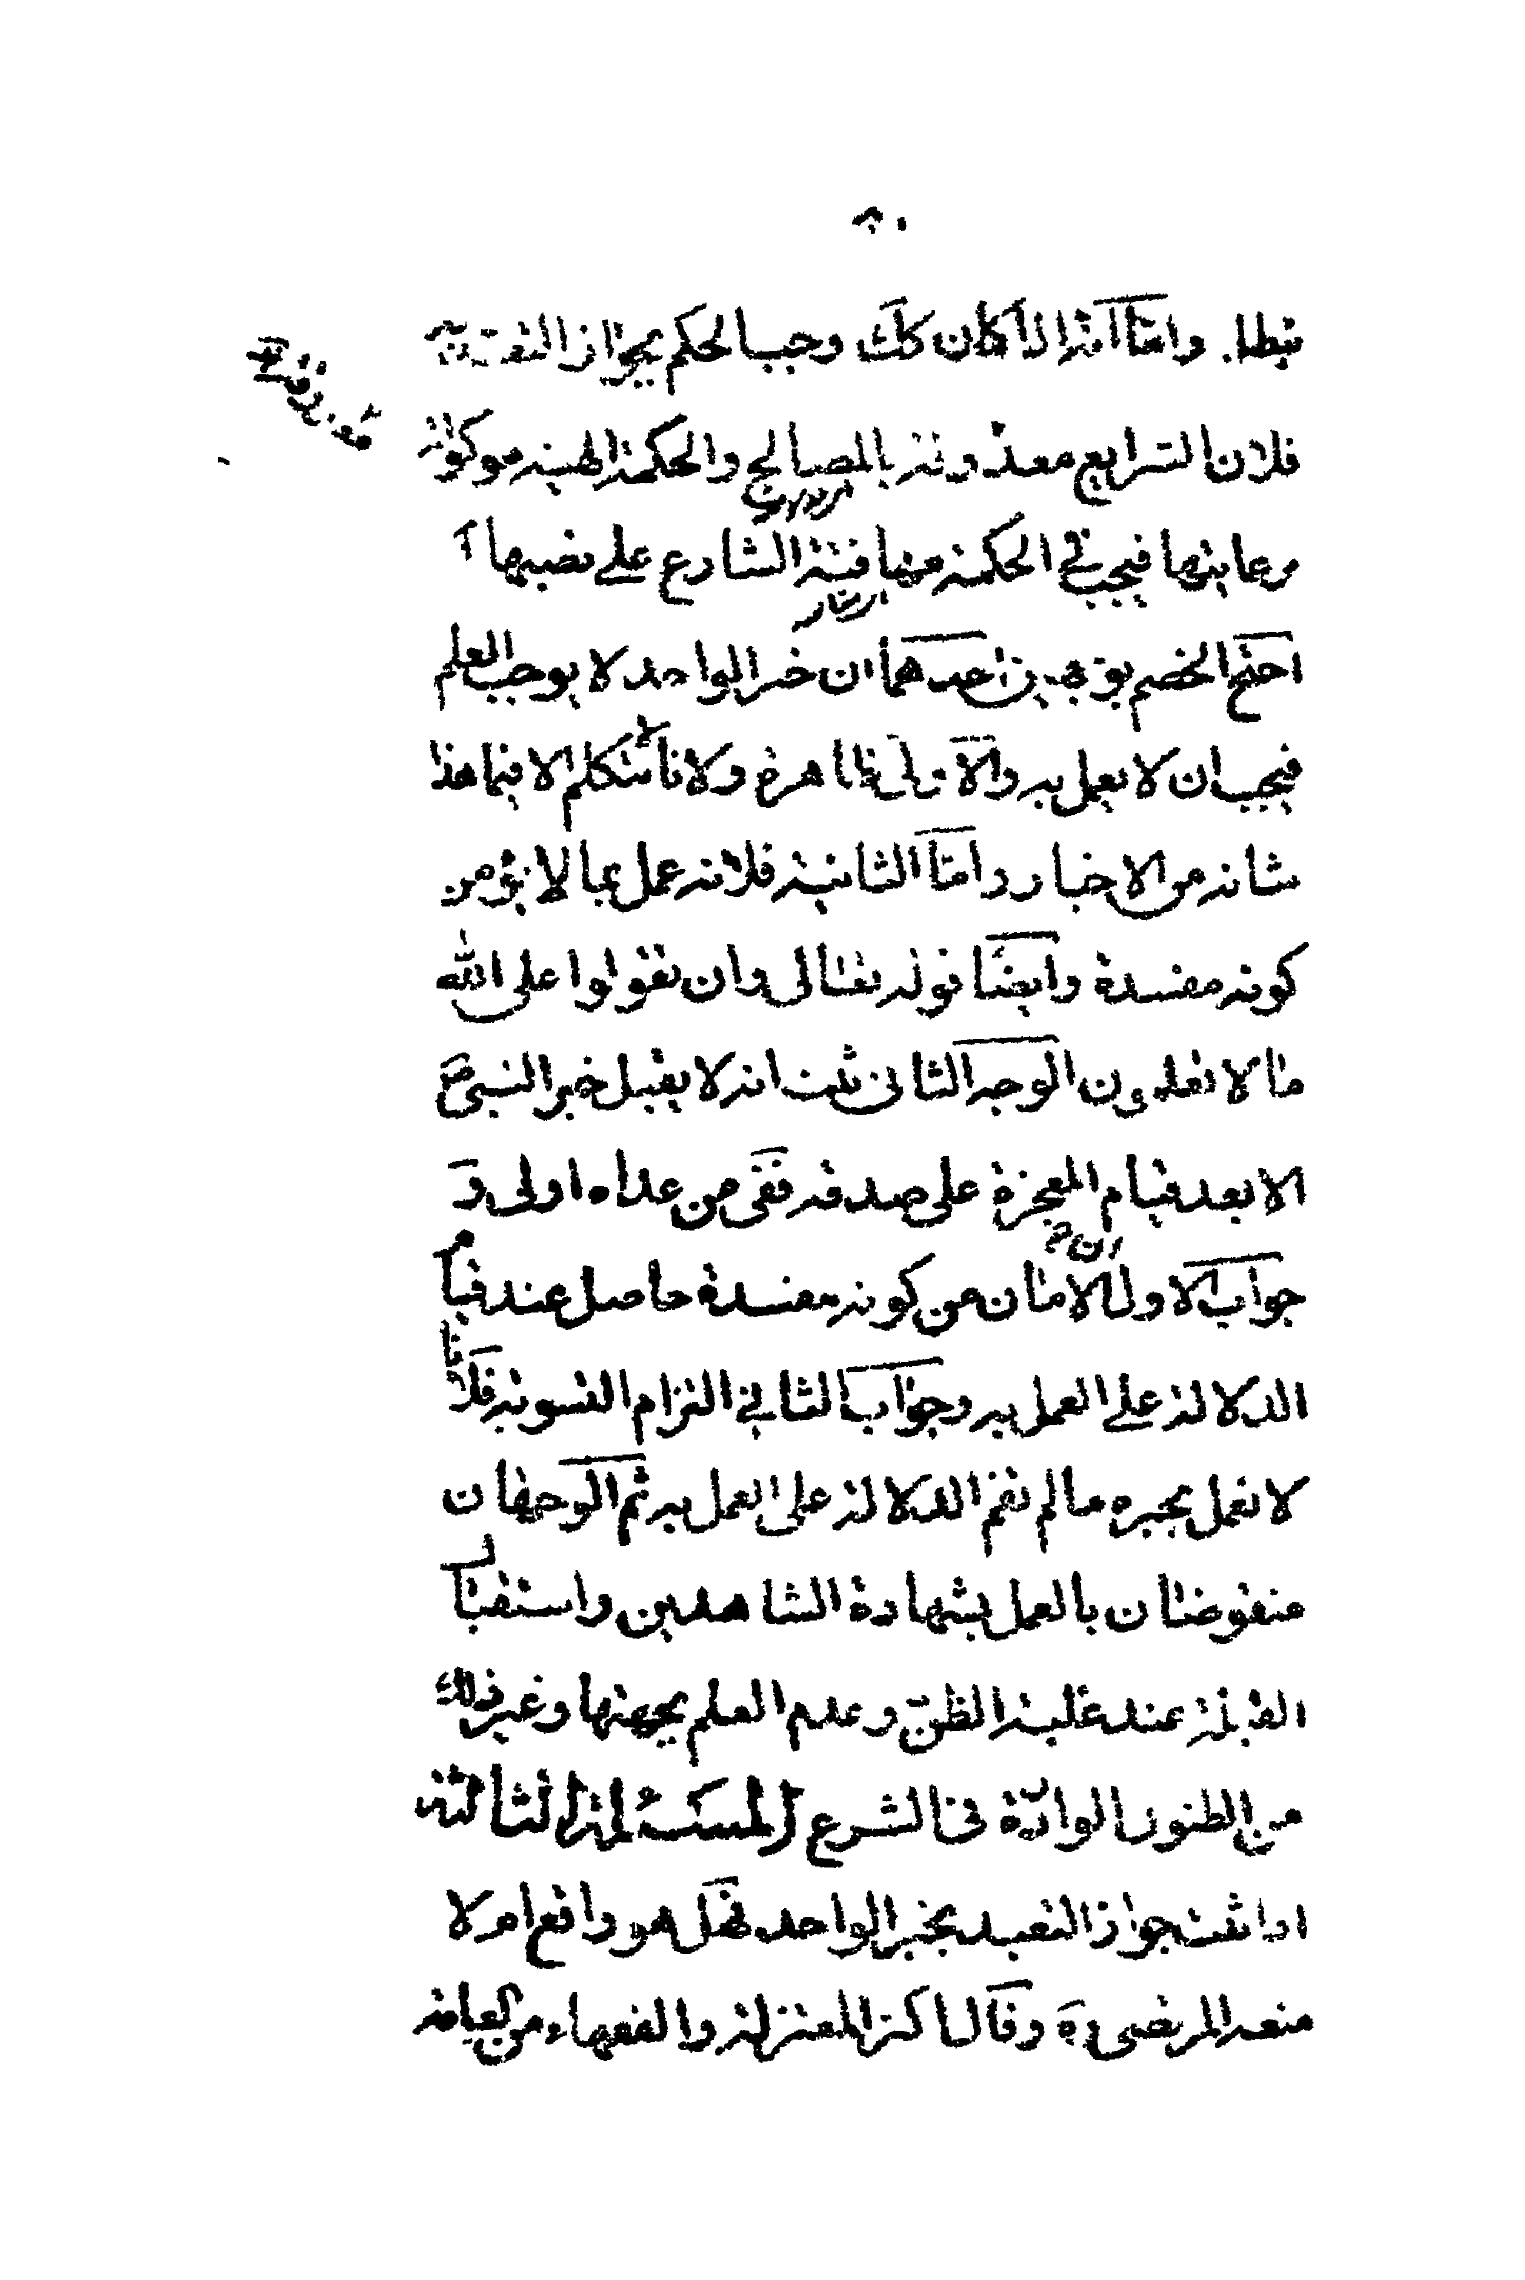 ٨٠
واما انه اذا كان كك وجب الحكم بجواز التعبد به
فلان الشرايع معدوقة بالمصالح والحكمة الهية موكولة
برعايتها فيجب في الحكمة منها الشارع على نصبها
احتج الخصم بوجهين احدهما ان خبر الواحد لا يوجب العلم
فيجب ان لا يعمل به والاولى ظاهرة ولانا نتكلم الا فيما هذا
شانه من الاخبار واما الثانية فلانه عمل بما لا يؤمن
كونه مفسدة وايضا قوله تعالى وان تقولوا على الله
ما لا تعلمون الوجه الثانى ثبت انه لا يقبل خبر النبى ص
الا بعد قيام المعجزة على صدقه ففى من عداه اولى و
جواب الاول ان الامان من كونه مفسدة حاصل عند قيام
الدلالة على العمل به وجواب الثانى التزام التسوية فلانا
لا نعمل بخبره ما لم تقم الدلالة على العمل به ثم الوجهان
منقوضان بالعمل بشهادة الشاهدين واستقبال
القبلة عند غلبة الظن وعدم العلم بجهتها وغير ذلك
من الظنون الواردة فى الشرع المسئلة الثالثة
اذا ثبت جواز التعبد بخبر الواحد فهل هو واقع ام لا
منعه المرتضى ره وقال اكثر المعتزلة والفقهاء من العامة